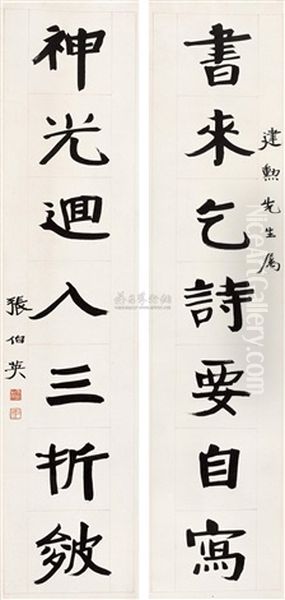 書來乞詩要自寫
建勲先生属
神光迴入三折皴
張伯英